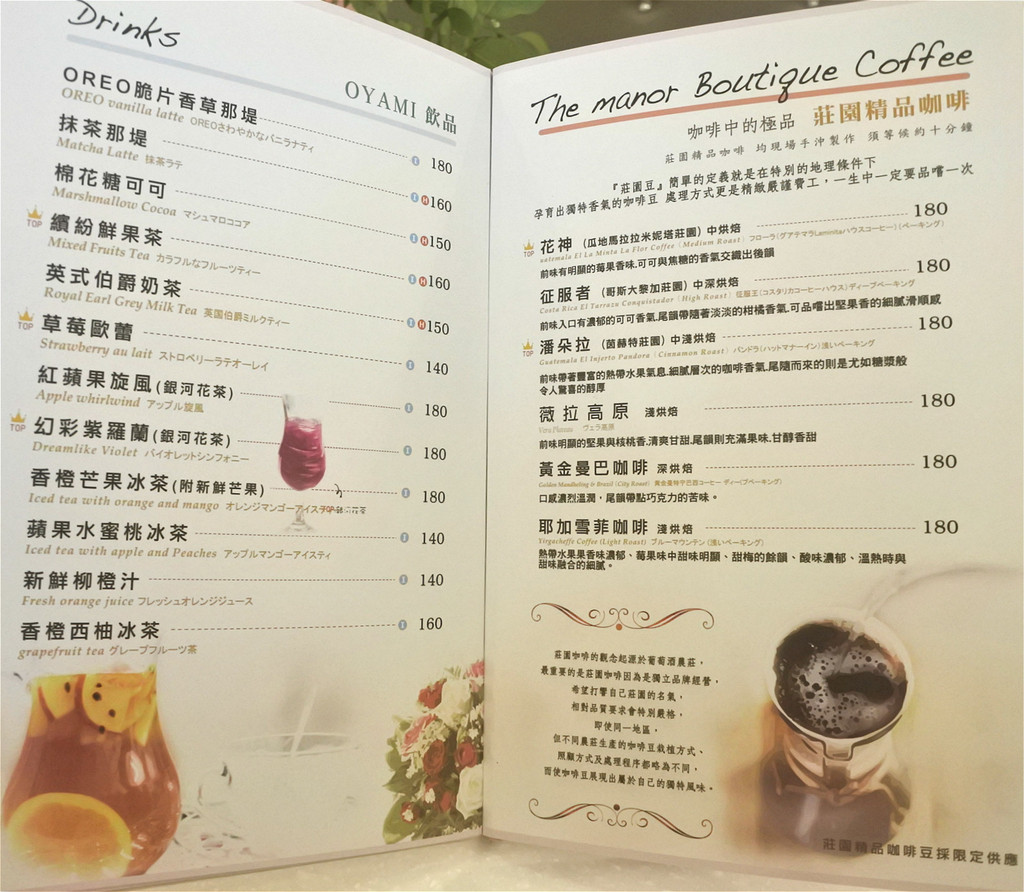 Drinks
OYAMI 飲品
OREO脆片香草那堤 I 180
OREO vanilla latte OREOさわやかなバニラナティ
抹茶那堤 I H 160
Matcha Latte 抹茶ラテ
棉花糖可可 I H 150
Marshmallow Cocoa マシュマロココア
TOP 繽紛鮮果茶 I H 160
Mixed Fruits Tea カラフルなフルーツティー
英式伯爵奶茶 I H 150
Royal Earl Grey Milk Tea 英国伯爵ミルクティー
TOP 草莓歐蕾 I 140
Strawberry au lait ストロベリーラテオーレイ
紅蘋果旋風(銀河花茶) I 180
Apple whirlwind アップル旋風
TOP 幻彩紫羅蘭(銀河花茶) I 180
Dreamlike Violet バイオレットシンフォニー
香橙芒果冰茶(附新鮮芒果) I 180
Iced tea with orange and mango オレンジマンゴーアイスティ
蘋果水蜜桃冰茶 I 140
Iced tea with apple and Peaches アップルマンゴーアイスティ
新鮮柳橙汁 I 140
Fresh orange juice フレッシュオレンジジュース
香橙西柚冰茶 I 160
grapefruit tea グレープフルーツ茶
The manor Boutique Coffee
咖啡中的極品 莊園精品咖啡
莊園精品咖啡 均現場手沖製作 須等候約十分鐘
『莊園豆』簡單的定義就是在特別的地理條件下
孕育出獨特香氣的咖啡豆 處理方式更是精緻嚴謹費工,一生中一定要品嚐一次
TOP 花神 (瓜地馬拉拉米妮塔莊園) 中烘焙 180
uatemala El La Minta La Flor Coffee (Medium Roast) フローラ(グアテマラLaminitaハウスコーヒー)(ベーキング)
前味有明顯的莓果香味,可可與焦糖的香氣交織出後韻
征服者 (哥斯大黎加莊園) 中深烘焙 180
Costa Rica El Tarrazu Conquistador (High Roast) 征服王(コスタリカコーヒーハウス)ディープベーキング
前味入口有濃郁的可可香氣,尾韻帶隨著淡淡的柑橘香氣,可品嚐出堅果香的細膩滑順感
TOP 潘朵拉 (茵赫特莊園) 中淺烘焙 180
Guatemala El Injerto Pandora (Cinnamon Roast) パンドラ(ハットマナーイン)浅いベーキング
前味帶著豐富的熱帶水果氣息,細膩層次的咖啡香氣,尾隨而來的則是尤如糖漿般
令人驚喜的醇厚
薇拉高原 淺烘焙 180
ヴェラ高原
前味明顯的堅果與核桃香,清爽甘甜,尾韻則充滿果味,甘醇香甜
黃金曼巴咖啡 深烘焙 180
Golden Mandheling & Brazil (City Roast) 黄金曼特宁巴西コーヒー ディープベーキング)
口感濃烈溫潤,尾韻帶點巧克力的苦味。
耶加雪菲咖啡 淺烘焙 180
Yirgacheffe Coffee (Light Roast) ブルーマウンテン(浅いベーキング)
熱帶水果果香味濃郁、莓果味中甜味明顯、甜梅的餘韻、酸味濃郁、溫熱時與
甜味融合的細膩。
莊園咖啡的觀念起源於葡萄酒農莊,
最重要的是莊園咖啡因為是獨立品牌經營,
希望打響自己莊園的名氣,
相對品質要求會特別嚴格,
即使同一地區,
但不同農莊生產的咖啡豆栽植方式、
照顧方式及處理程序都略為不同,
而使咖啡豆展現出屬於自己的獨特風味。
莊園精品咖啡豆採限定供應